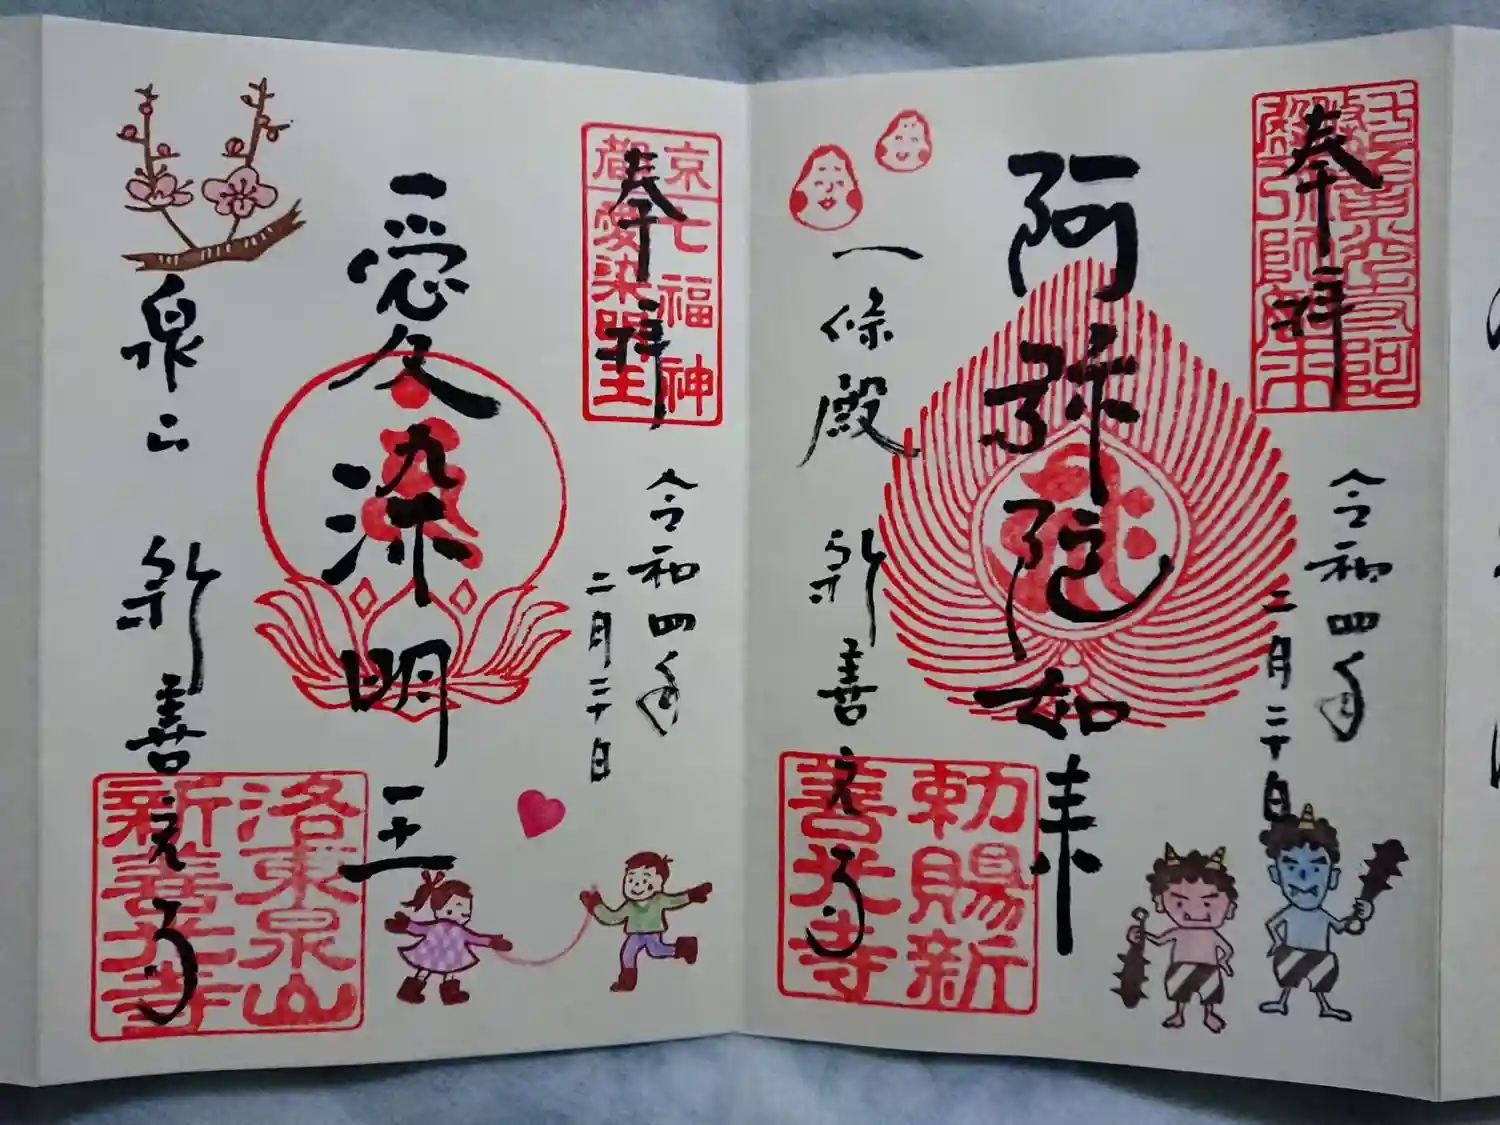 奉拝
阿弥陀如来
令和四年
二月二十日
一條殿
新善光寺
勅賜新
善光寺
奉拝
京
七福神
都
愛染明王
愛染明王
令和四年
二月二十日
泉山
新善光寺
洛東泉山
新善光寺